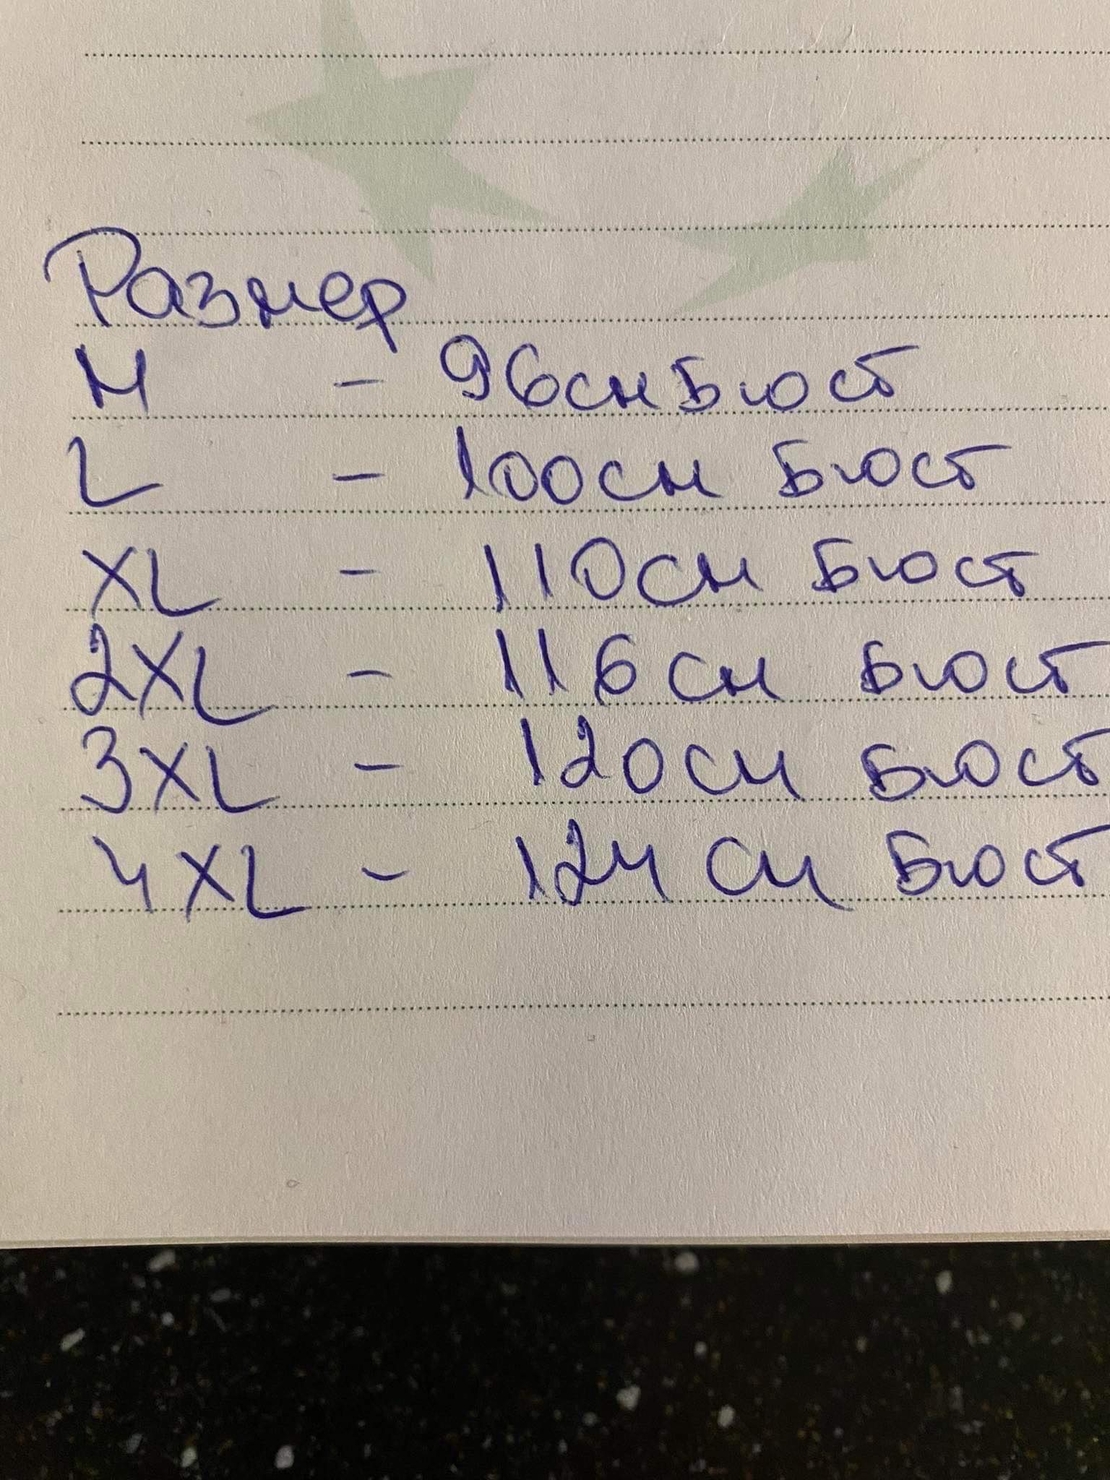 Размер
M - 96см Бюст
L - 100см Бюст
XL - 110см Бюст
2XL - 116см Бюст
3XL - 120см Бюст
4XL - 124 см Бюст